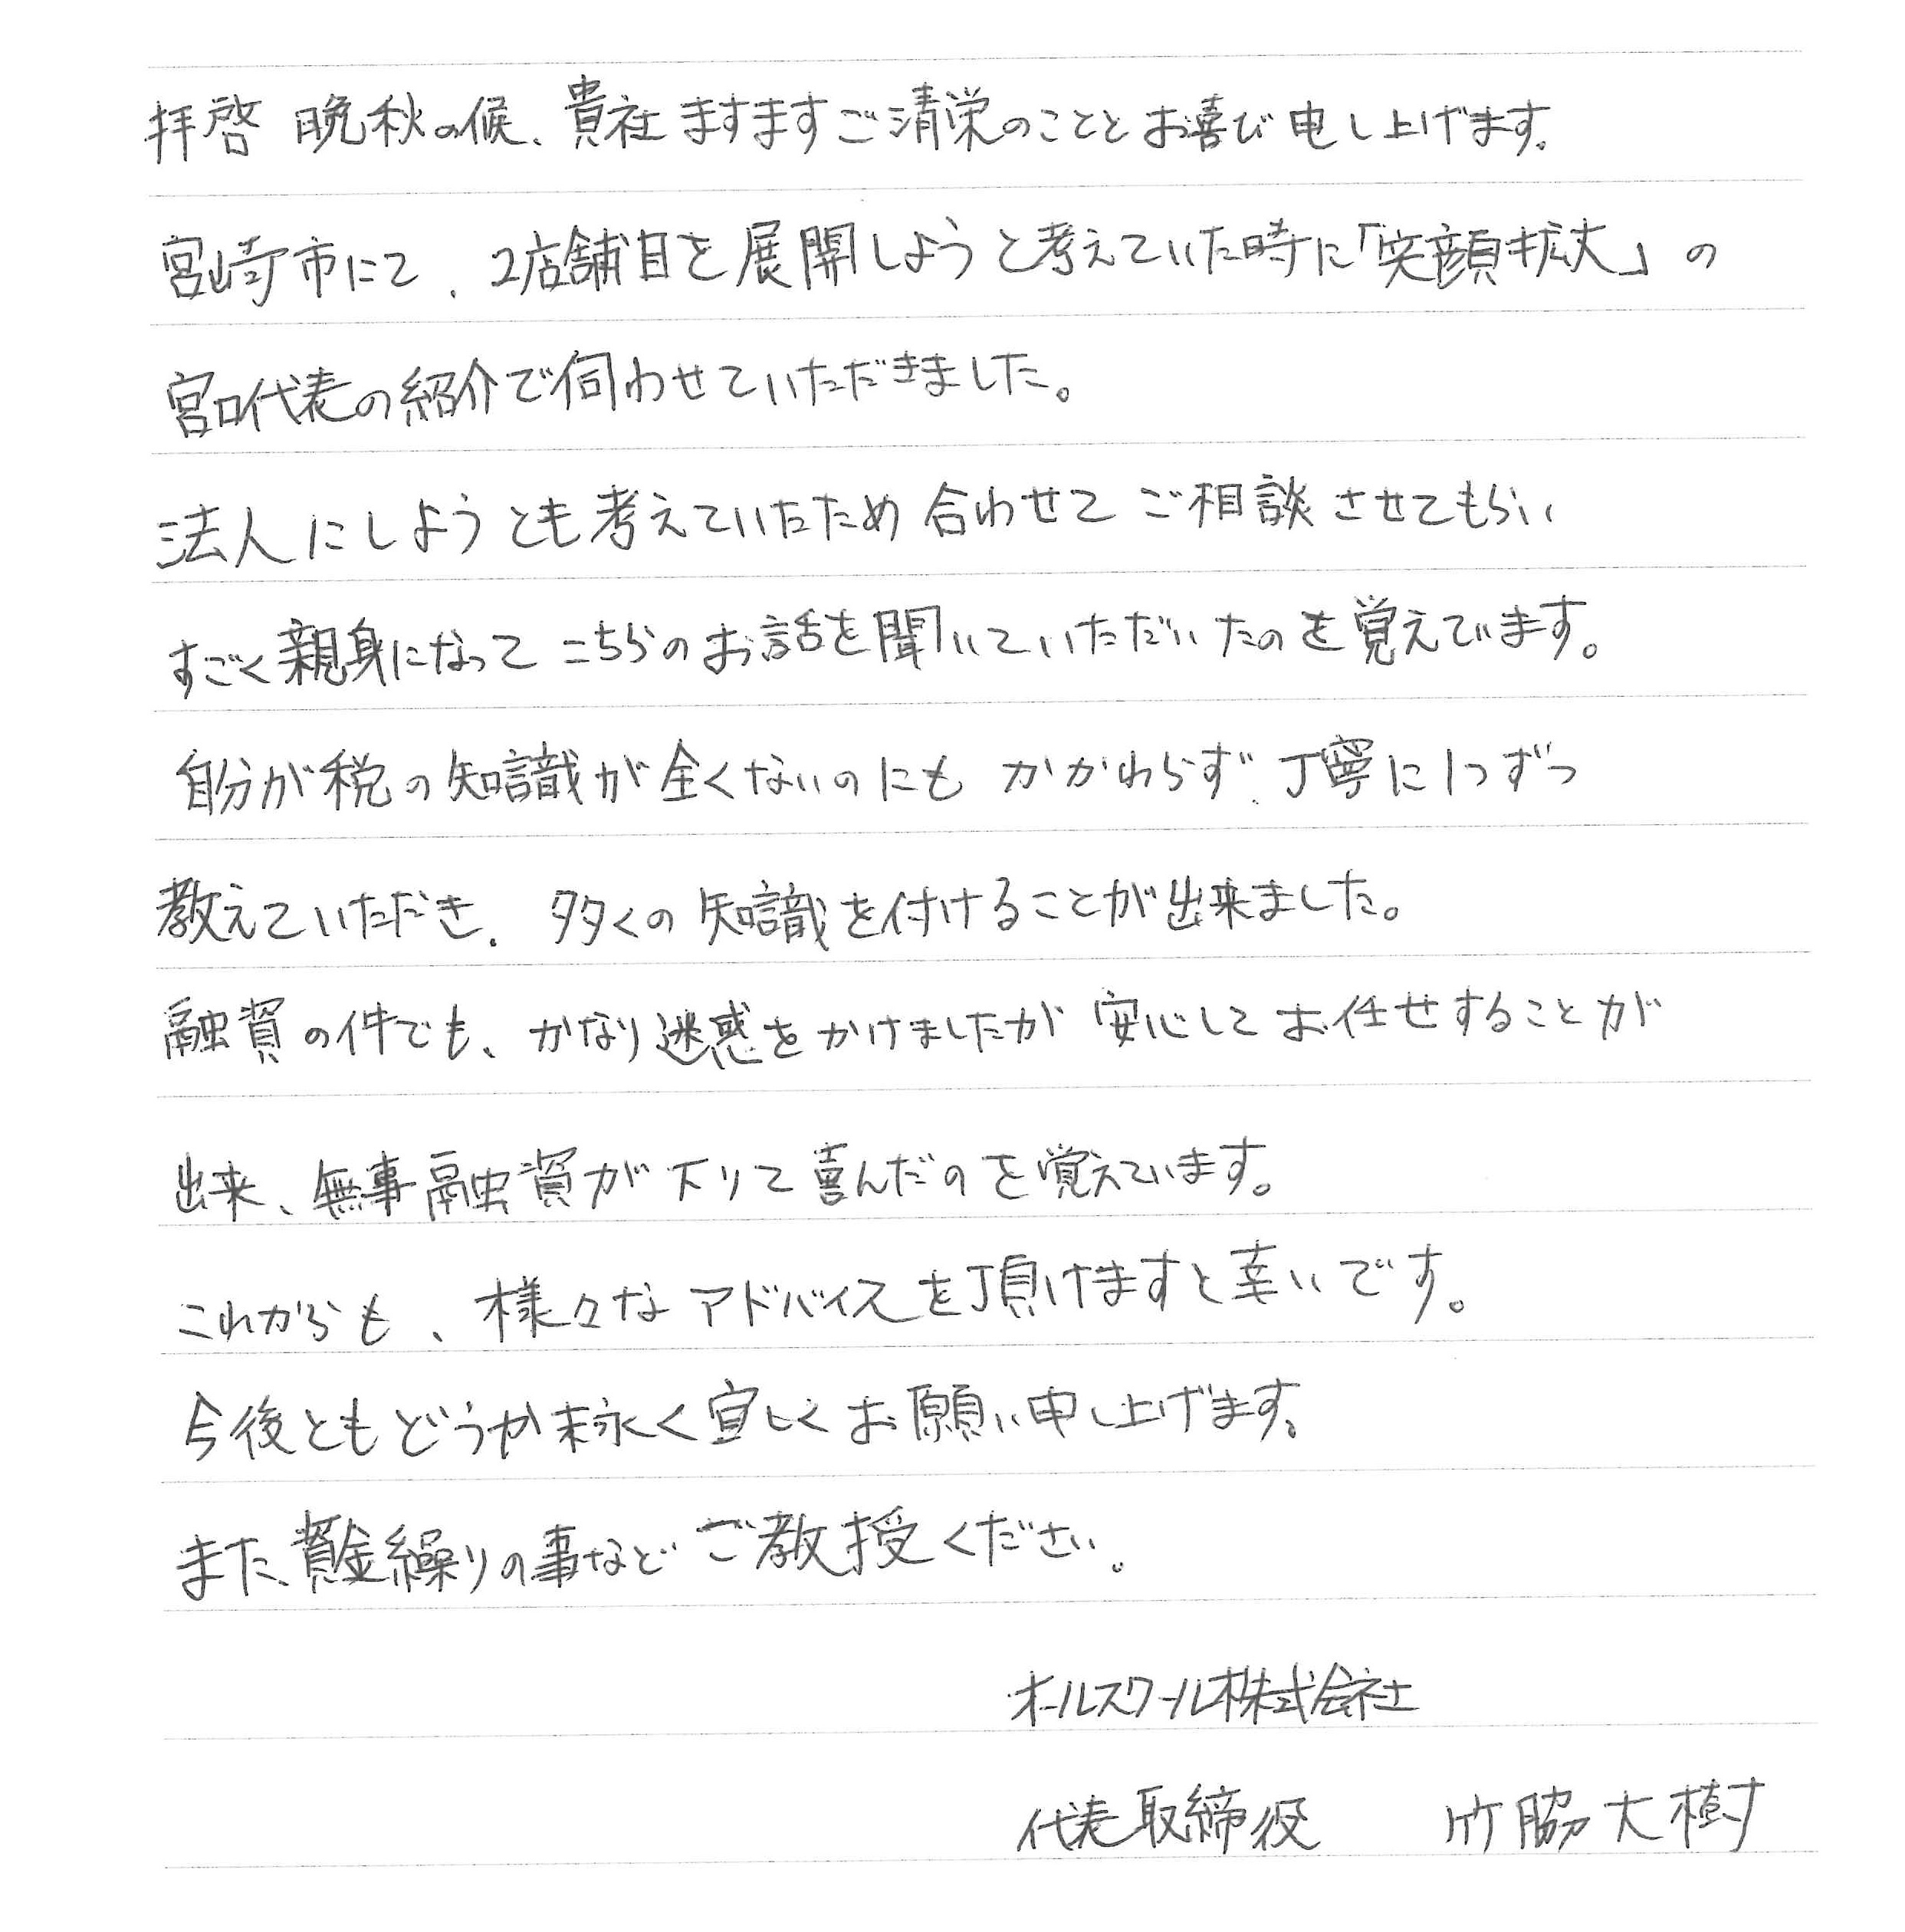 拝啓 晩秋の候、貴社ますますご清栄のこととお喜び申し上げます。
宮崎市にて、2店舗目を展開しようと考えていた時に「笑顔拡大」の
宮口代表の紹介で伺わせていただきました。
法人にしようとも考えていたため合わせてご相談させてもらい
すごく親身になってこちらのお話を聞いていただいたのを覚えています。
自分が税の知識が全くないのにもかかわらず、丁寧に1つずつ
教えていただき、多くの知識を付けることが出来ました。
融資の件でも、かなり迷惑をかけましたが安心してお任せすることが
出来、無事融資が下りて喜んだのを覚えています。
これからも、様々なアドバイスを頂けますと幸いです。
今後ともどうか末永く宜しくお願い申し上げます。
また、資金繰りの事などご教授ください。
オールスクール株式会社
代表取締役 竹脇大樹